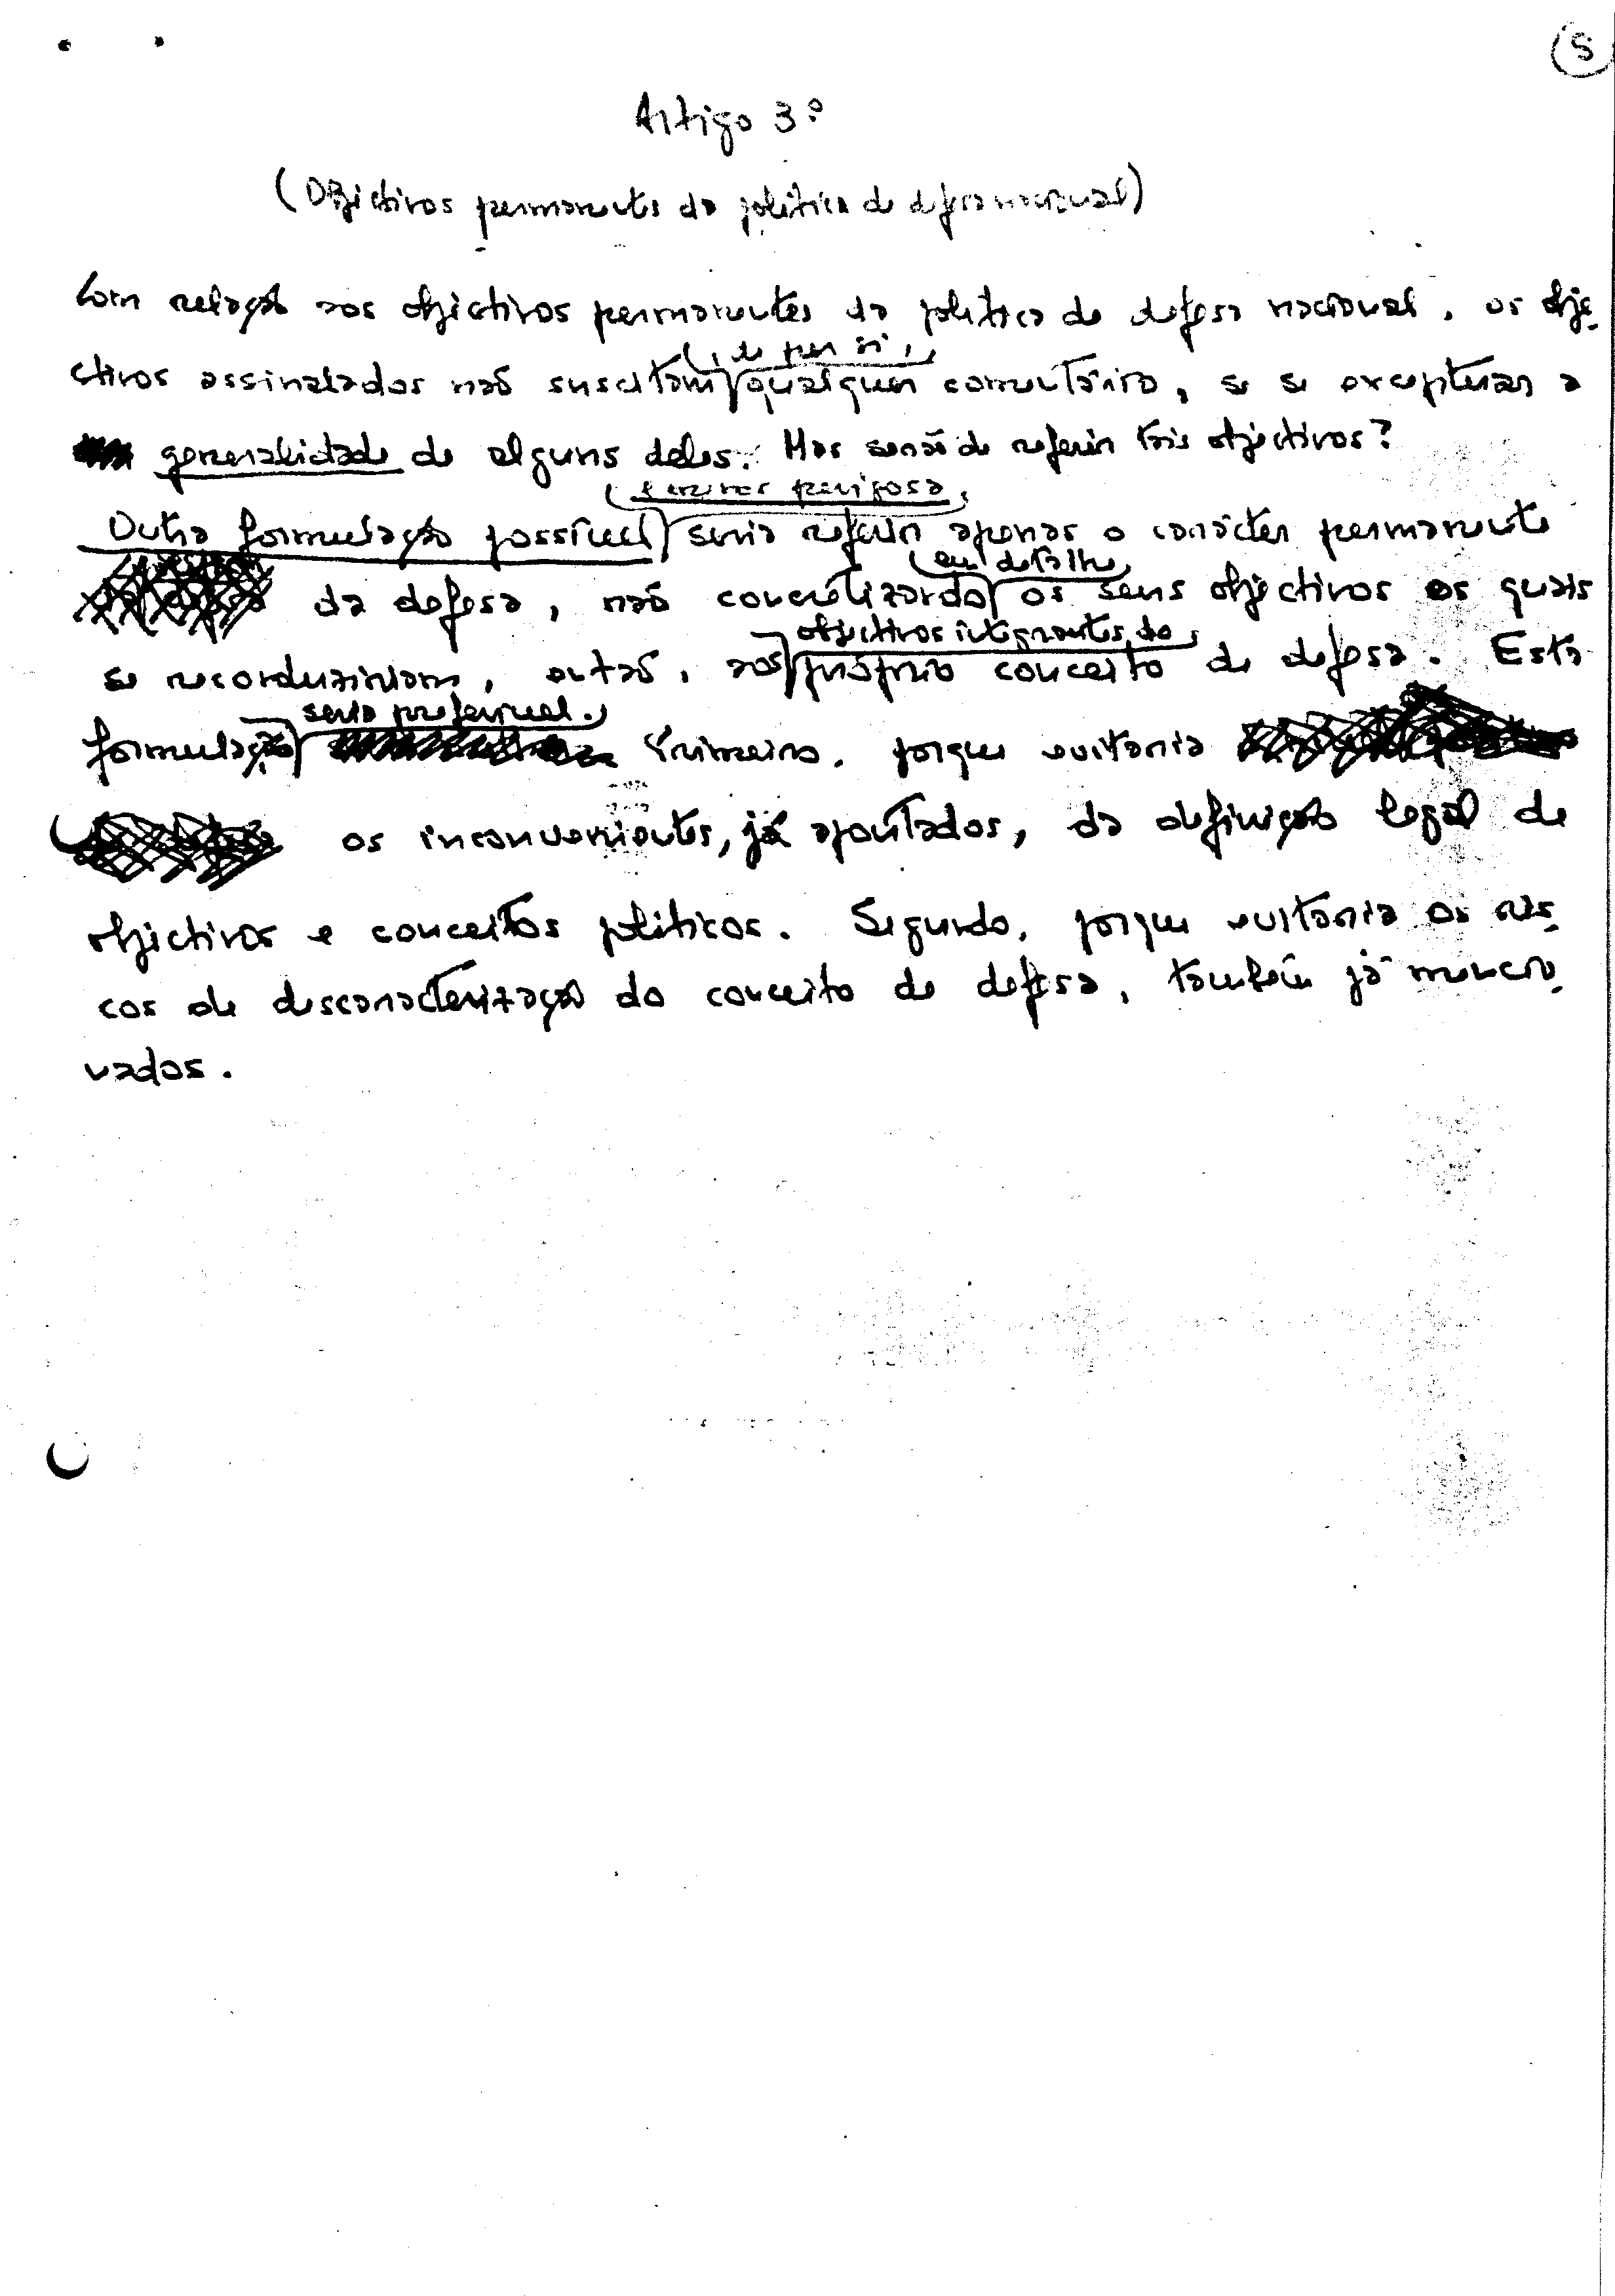 5
Artigo 3º
(Objectivos permanentes da política de defesa nacional)
Com relação aos objectivos permanentes da política de defesa nacional, os obje-
, de per si,
ctivos assinalados não suscitam qualquer comentário, se se exceptuar a
generalidade de alguns deles. Mas senão de referir tais objectivos?
e menos perigosa,
Outra formulação possível seria referir apenas o carácter permanente
em detalhe
da defesa, não concretizando os seus objectivos os quais
objectivos integrantes do
se reconduziriam, então, aos próprio conceito de defesa. Esta
seria preferível.
formulação Primeiro, porque evitaria
os inconvenientes, já apontados, da definição legal de
objectivos e conceitos políticos. Segundo, porque evitaria os ris-
cos de descaracterização do conceito de defesa, também já mencio-
nados.